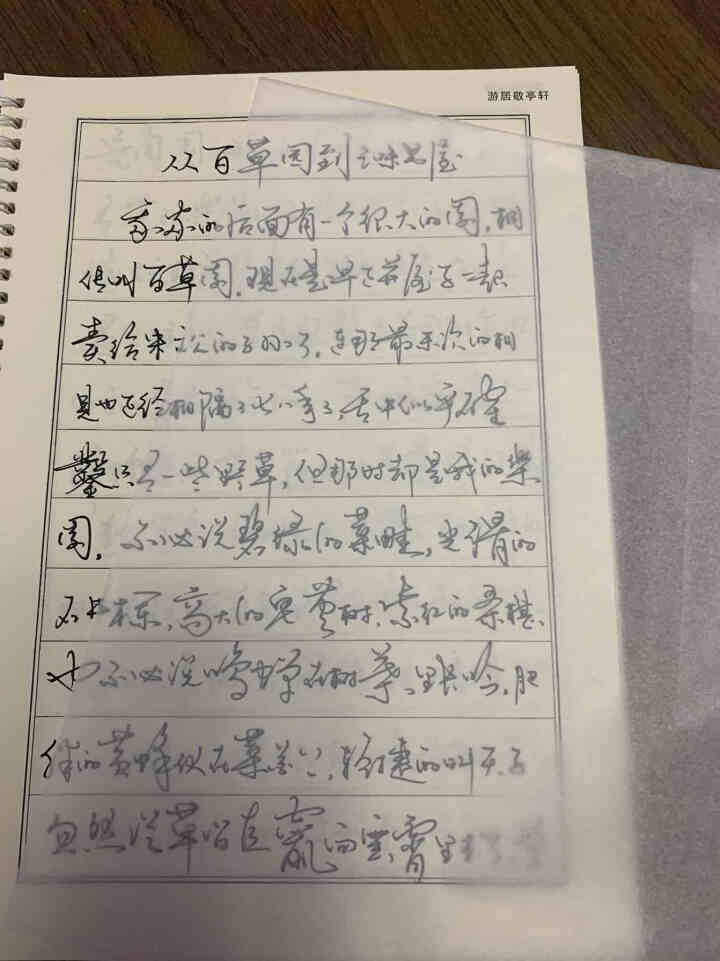 游居敬亭轩
从百草园到三味书屋
我家的后面有一个很大的园，相
传叫百草园，现在是早已并屋子一起
卖给朱文公的子孙了，连那最末次的相
见也已经相隔了七八年了，其中似乎确
凿只有一些野草，但那时却是我的乐
园。不必说碧绿的菜畦，光滑的
石井栏，高大的皂荚树，紫红的桑椹，
也不必说鸣蝉在树叶里长吟，肥
胖的黄蜂伏在菜花上，轻捷的叫天子
忽然从草间直窜向云霄里